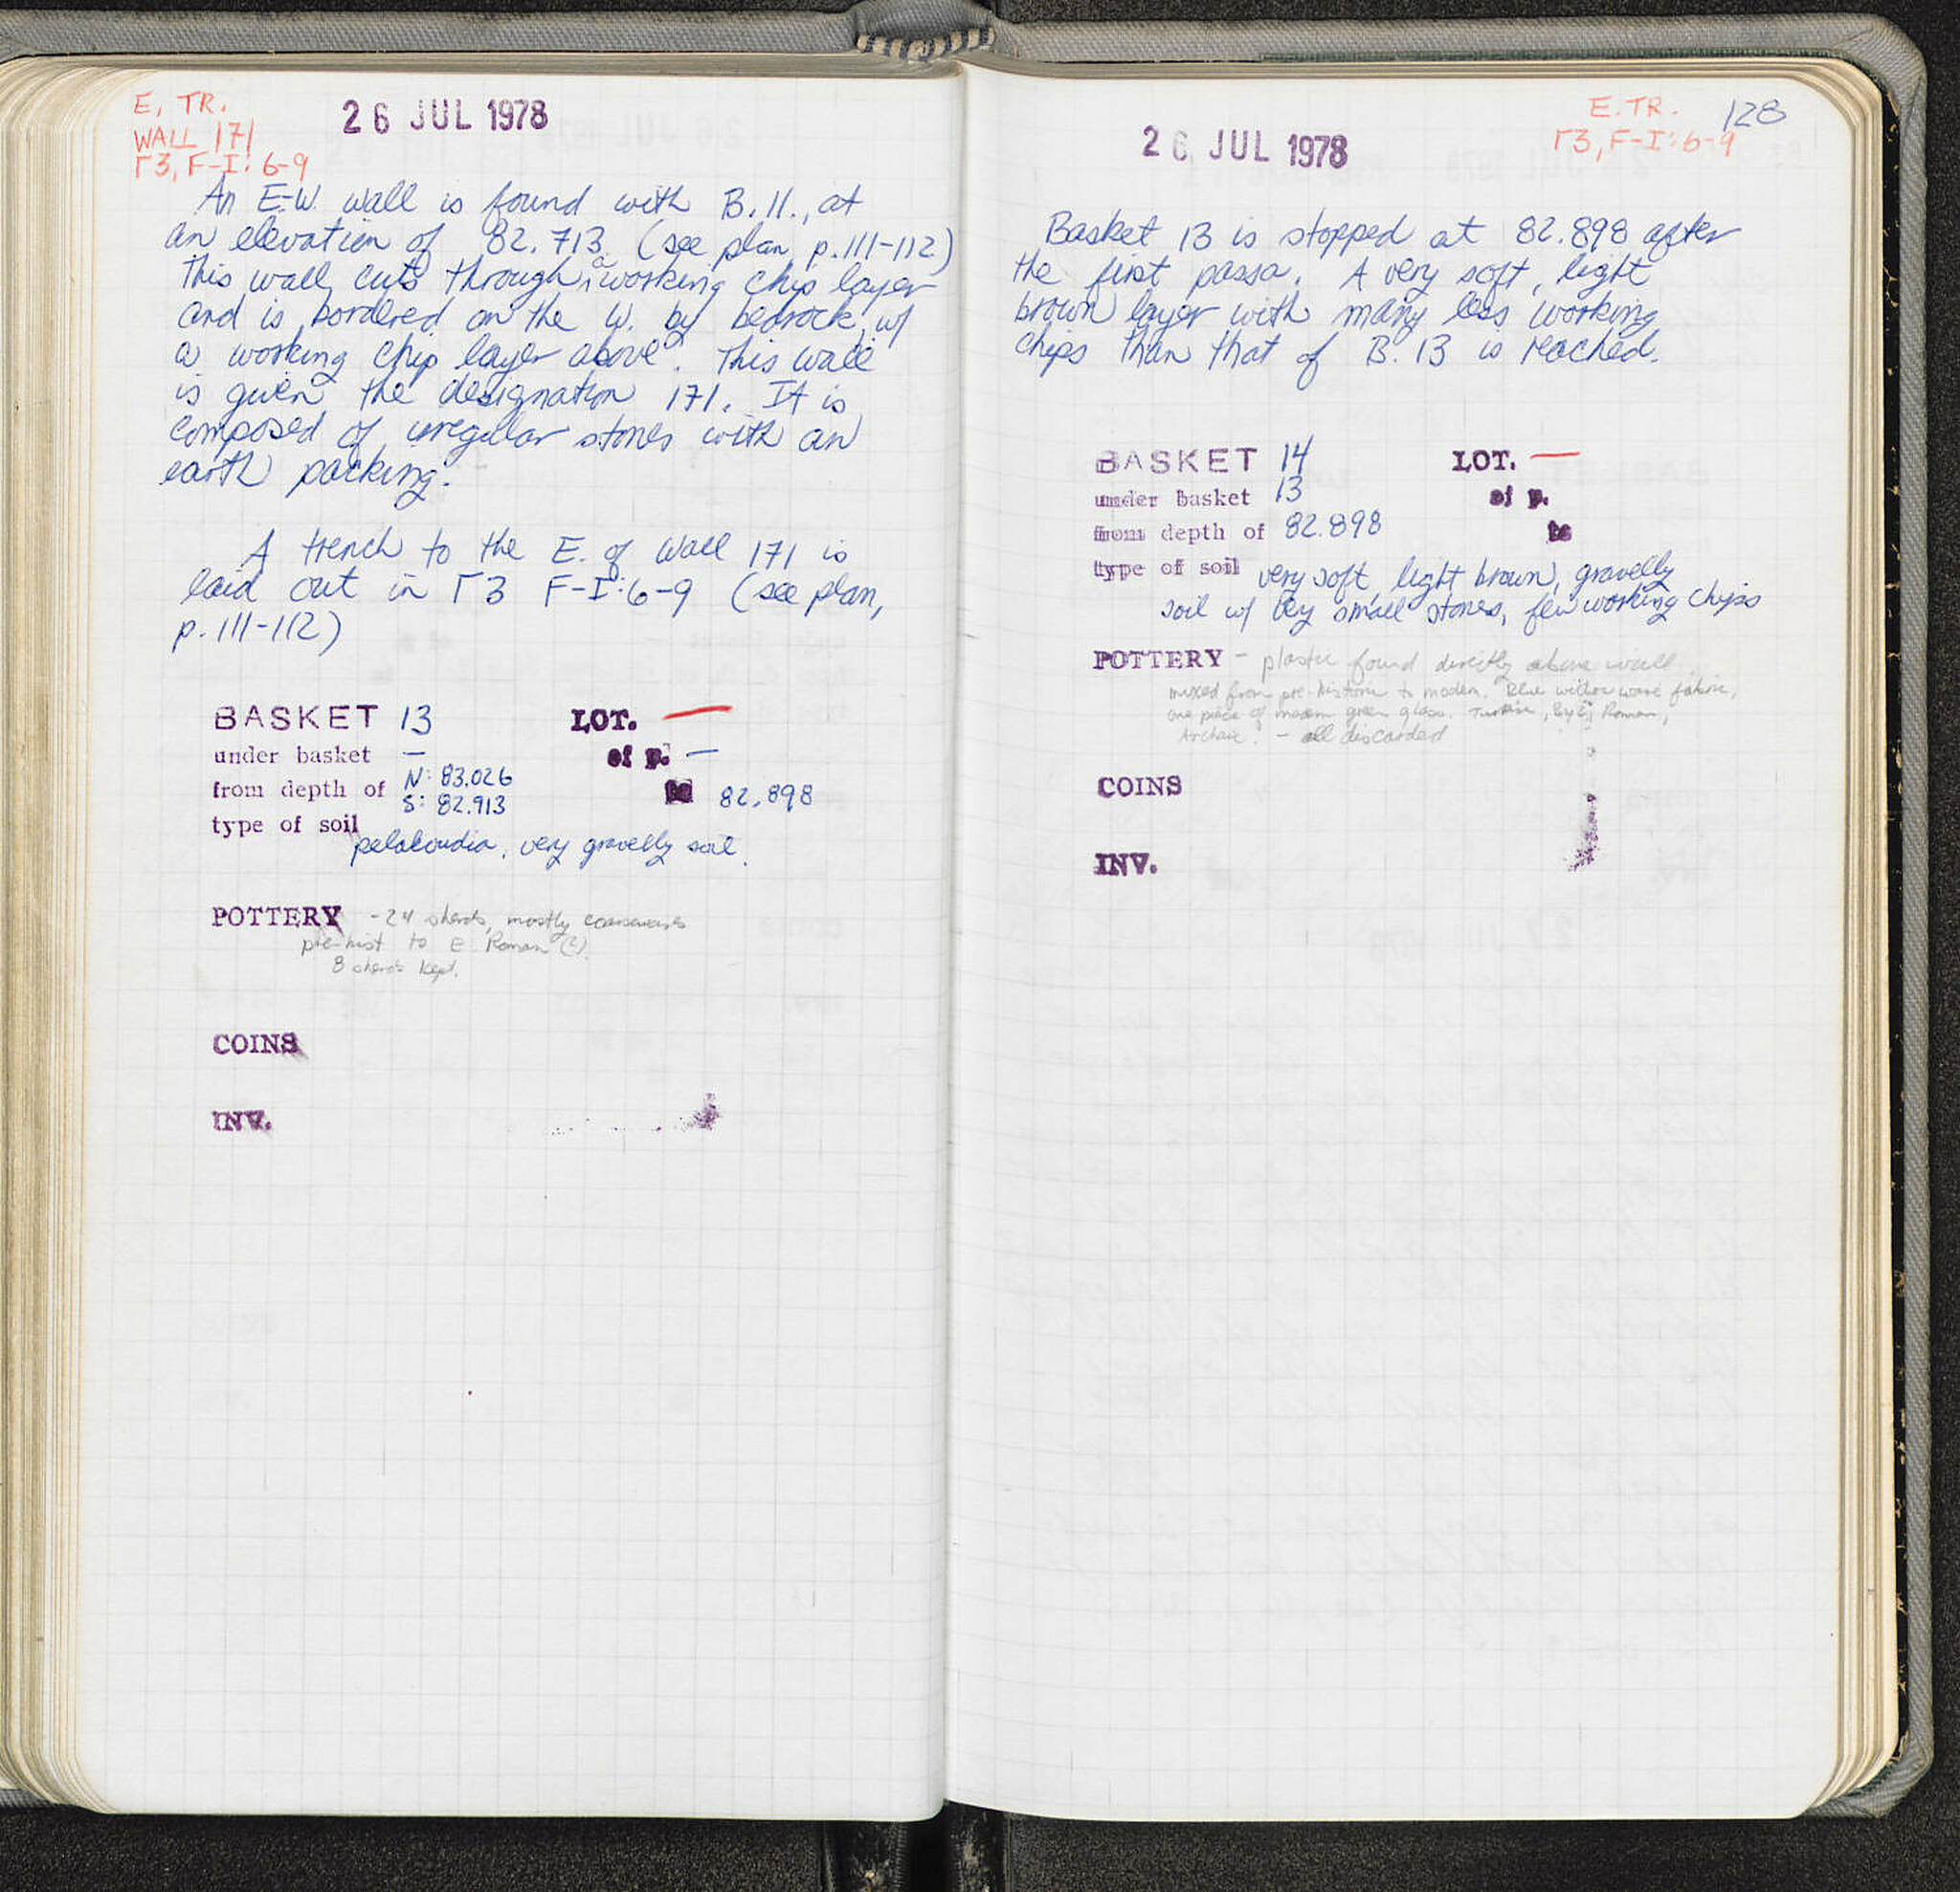 E. TR.
WALL 171
Γ3, F-I: 6-9
26 JUL 1978
An E-W. wall is found with B. 11., at
an elevation of 82.713 (see plan, p. 111-112)
This wall cuts through a working chip layer
and is bordered on the W. by bedrock, w/
a working chip layer above. This wall
is given the designation 171. It is
composed of irregular stones with an
earth packing.
A trench to the E. of Wall 171 is
laid out in Γ3 F-I: 6-9 (see plan,
p. 111-112)
BASKET 13 LOT. —
under basket — of p. —
from depth of N: 83.026 S: 82.913 to 82.898
type of soil
pelakoudia, very gravelly soil.
POTTERY - 24 sherds, mostly coarsewares
pre-hist to E Roman (?).
8 sherds kept.
COINS
INV.
E. TR. 128
Γ3, F-I: 6-9
26 JUL 1978
Basket 13 is stopped at 82.898 after
the first passa. A very soft, light
brown layer with many less working
chips than that of B. 13 is reached.
BASKET 14 LOT. —
under basket 13 of p.
from depth of 82.898 to
type of soil very soft, light brown, gravelly
soil w/ very small stones, few working chips
POTTERY - plastic found directly above wall
mixed from pre-historic to modern. Blue willow ware fabric,
one piece of modern green glass. Turkish, Byz, Roman,
Archaic. - all discarded
COINS
INV.